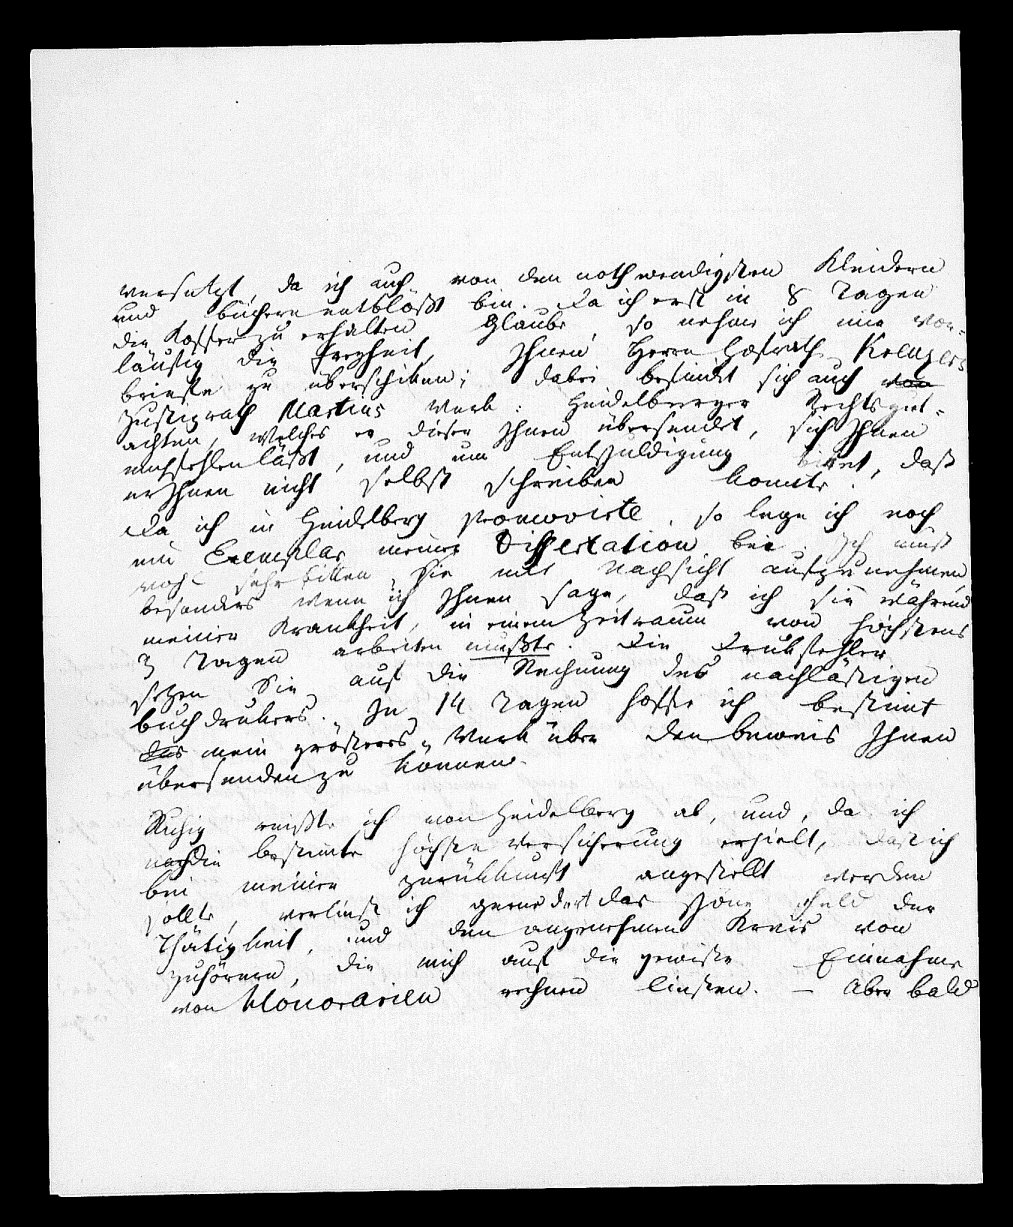 versetzt, da ich auch von den nothwendigsten Kleidern
und Büchern entblößt bin. Da ich erst in 8 Tagen
die Koffer zu erhalten glaube, so nehme ich mir vor-
läufig die Freyheit, Ihnen Herrn Hofrath
briefe zu überschiken; dabei befindet sich auch von
Justizrath Martins Werk: Heidelberger Rechtsgut-
achten, welches er dieser Ihnen übersendet, sich Ihnen
empfehlen läßt, und um Entschuldigung bittet, daß
er Ihnen nicht selbst schreiben konnte.
Da ich in Heidelberg promovirte, so lege ich noch
ein Exemplar meiner Dissertation bei. Ich muß
noch sehr bitten, sie mit Nachsicht aufzunehmen,
besonders wenn ich Ihnen sage, daß ich sie während
meiner Krankheit, in einem Zeitraum von höchstens
3 Tagen arbeiten mußte. Die Drukfehler
setzen Sie auf die Rechnung des nachlässigen
Buchdrukers. In 14 Tagen hoffe ich bestimt
das mein größeres Werk über den Beweis Ihnen
übersenden zu können.
Ruhig reißte ich von Heidelberg ab, und, da ich
noch die bestimte höchste Versicherung erhielt, daß ich
bei meiner Zurükkunft angestellt werden
sollte, verließ ich gerne dort das schöne Feld der
Thätigkeit, und den angenehmen Kreis von
Zuhörern, die mich auf die gewisse Einnahme
von Honorarien rechnen ließen. – Aber bald